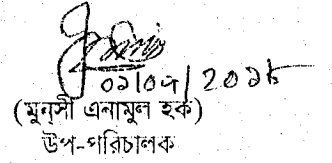 ০১/০৮/২০১৮
(মুনসী এনামুল হক)
উপ-পরিচালক